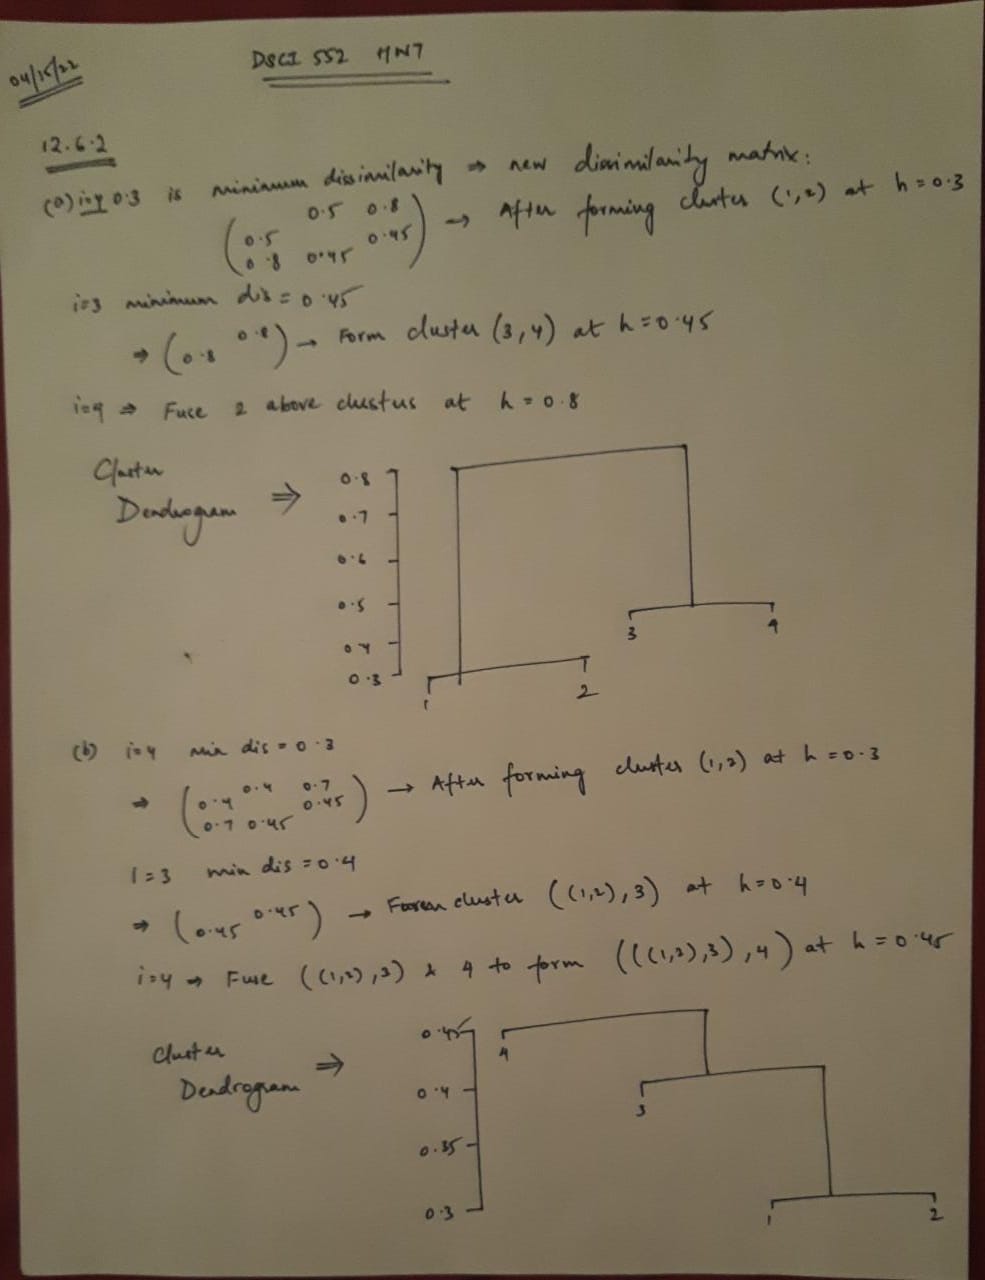 04/15/22
DSCI 552 HW7
12.6.2
(a) i=4 0.3 is minimum dissimilarity ⇒ new dissimilarity matrix:
0.5 0.8
0.5 0.45
0.8 0.45
→ After forming cluster (1,2) at h=0.3
i=3 minimum dis = 0.45
⇒ (0.8 0.8) → Form cluster (3,4) at h=0.45
i=4 ⇒ Fuse 2 above clusters at h = 0.8
Cluster
Dendrogram ⇒
0.8
0.7
0.6
0.5
0.4
0.3
3 4
1 2
(b) i=4 min dis = 0.3
0.4 0.7
⇒ 0.4 0.45
0.7 0.45
→ After forming cluster (1,2) at h=0.3
i=3 min dis = 0.4
⇒ (0.45 0.45) → Form cluster ((1,2),3) at h=0.4
i=4 ⇒ Fuse ((1,2),3) & 4 to form (((1,2),3),4) at h=0.45
Cluster
Dendrogram ⇒
0.45
0.4
0.35
0.3
4
3
1 2